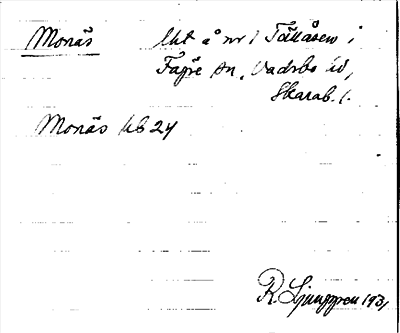 Monäs lht å nr 1 Tåååsen i
Fägre sn, Vadsbo hd,
Skarab. l.
Monäs hb 24
R. Ljunggren 1931